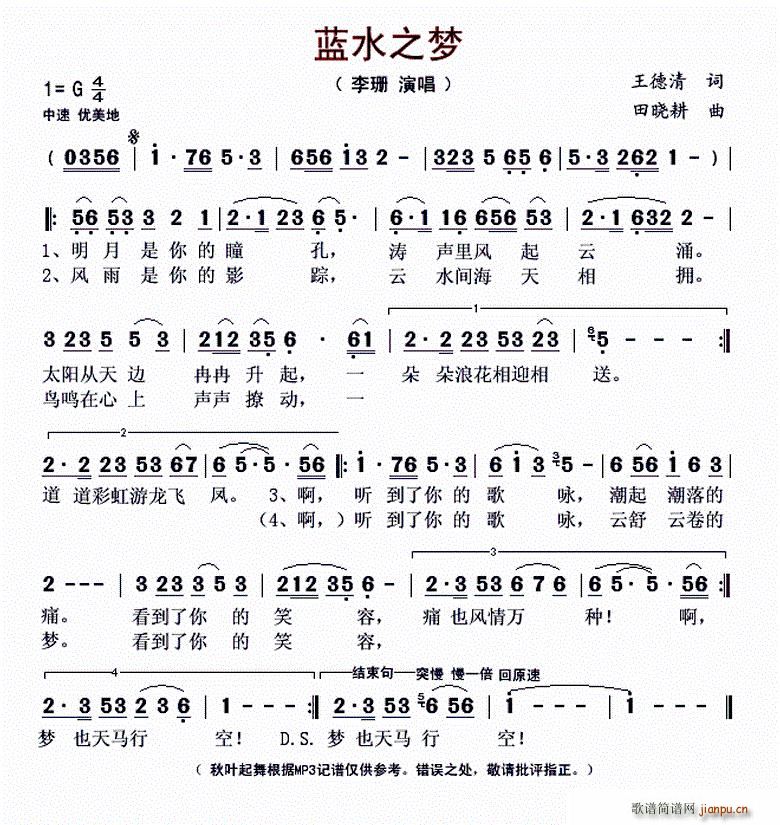 蓝水之梦
1= G 4/4 （ 李珊 演唱 ） 王德清 词
中速 优美地 田晓耕 曲
( 0356 | 1·76 5·3 | 656 13 2 - | 323 5 65 6 | 5·3 262 1 - ) |
|: 56 53 3 2 1 | 2·1 23 6 5· | 6·1 16 656 53 | 2·1 632 2 - |
1、明 月 是 你 的 瞳 孔， 涛 声里风 起 云 涌。
2、风 雨 是 你 的 影 踪， 云 水间海 天 相 拥。
1
3 23 5 5 3 | 212 35 6 · 61 | 2·2 23 53 23 | 6 5 - - - :|
太阳从天 边 冉冉 升 起， 一 朵 朵浪花相迎相 送。
鸟鸣在心 上 声声 撩 动， 一
2
2·2 23 53 67 | 6 5·5· 56 |: 1·76 5·3 | 6 1 3 3 5 - | 6 56 1 6 3 |
道 道彩虹游龙飞 凤。 3、啊， 听 到了你 的 歌 咏， 潮起 潮落的
（4、啊，）听 到了你 的 歌 咏， 云舒 云卷的
3
2 - - - | 3 23 3 5 3 | 212 35 6 - | 2·3 53 6 7 6 | 6 5·5· 56 :|
痛。 看到了你 的 笑 容， 痛 也风情万 种！ 啊，
梦。 看到了你 的 笑 容，
4 结束句——突慢 慢一倍 回原速
2·3 53 2 3 6 | 1 - - - :| 2·3 53 5 6 56 | 1 - - - | 1 - - - ‖
梦 也天马行 空！ D.S. 梦 也天马 行 空！
（ 秋叶起舞根据MP3记谱仅供参考。错误之处，敬请批评指正。）
歌谱简谱网 jianpu.cn